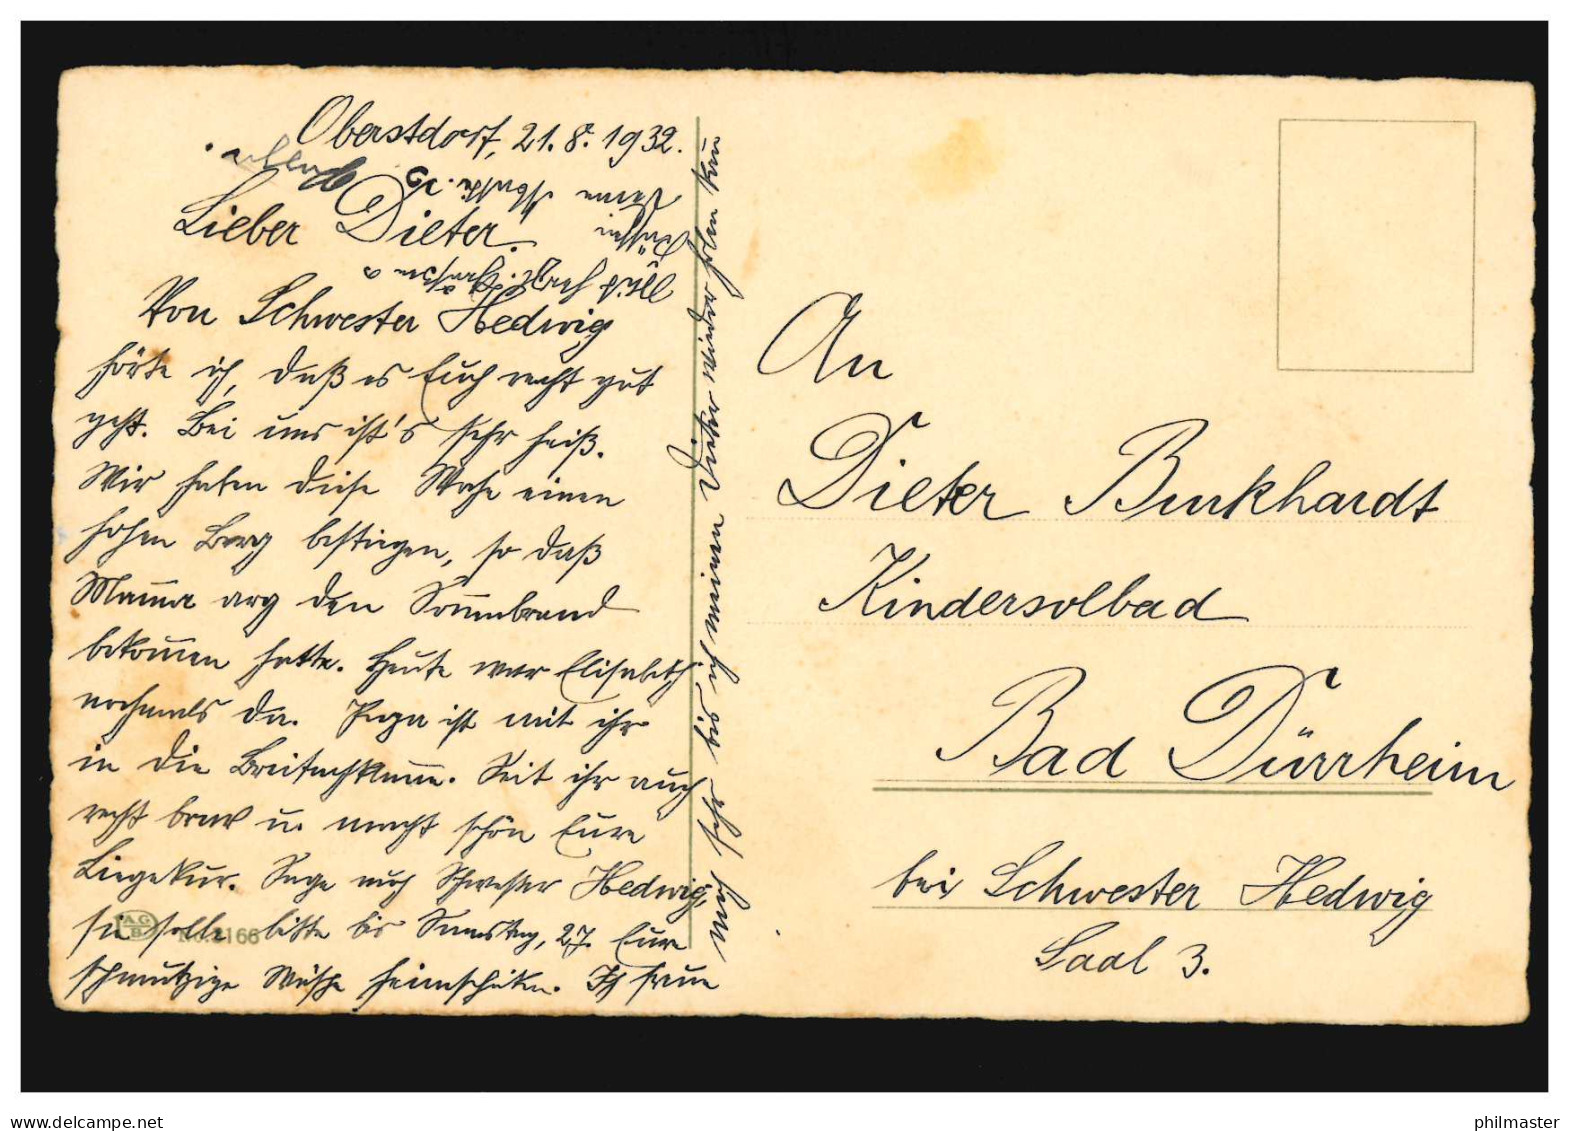 Oberstdorf, 21.8.1932.
Lieber Dieter!
Von Schwester Hedwig
hörte ich, daß es Euch recht gut
geht. Bei uns ist's sehr heiß.
Wir haben diese Woche einen
hohen Berg bestiegen, so daß
Mama arg den Sonnenbrand
bekommen hatte. Heute war Elisabeth
nochmals da. Papa ist mit ihr
in die Breitachklamm. Seit ihr auch
recht brav u. macht schön Eure
Liegekur. Sage auch Schwester Hedwig,
sie solle bitte bis Samstag, 27. Eure
schmutzige Wäsche heimschicken. Ich freue
mich sehr bis ich meinen Dieter wieder holen kann
Gruß
A.G.
B.
No. 2166
An
Dieter Burkhardt
Kindersolbad
Bad Dürrheim
bei Schwester Hedwig
Saal 3.
delcampe.net
philmaster